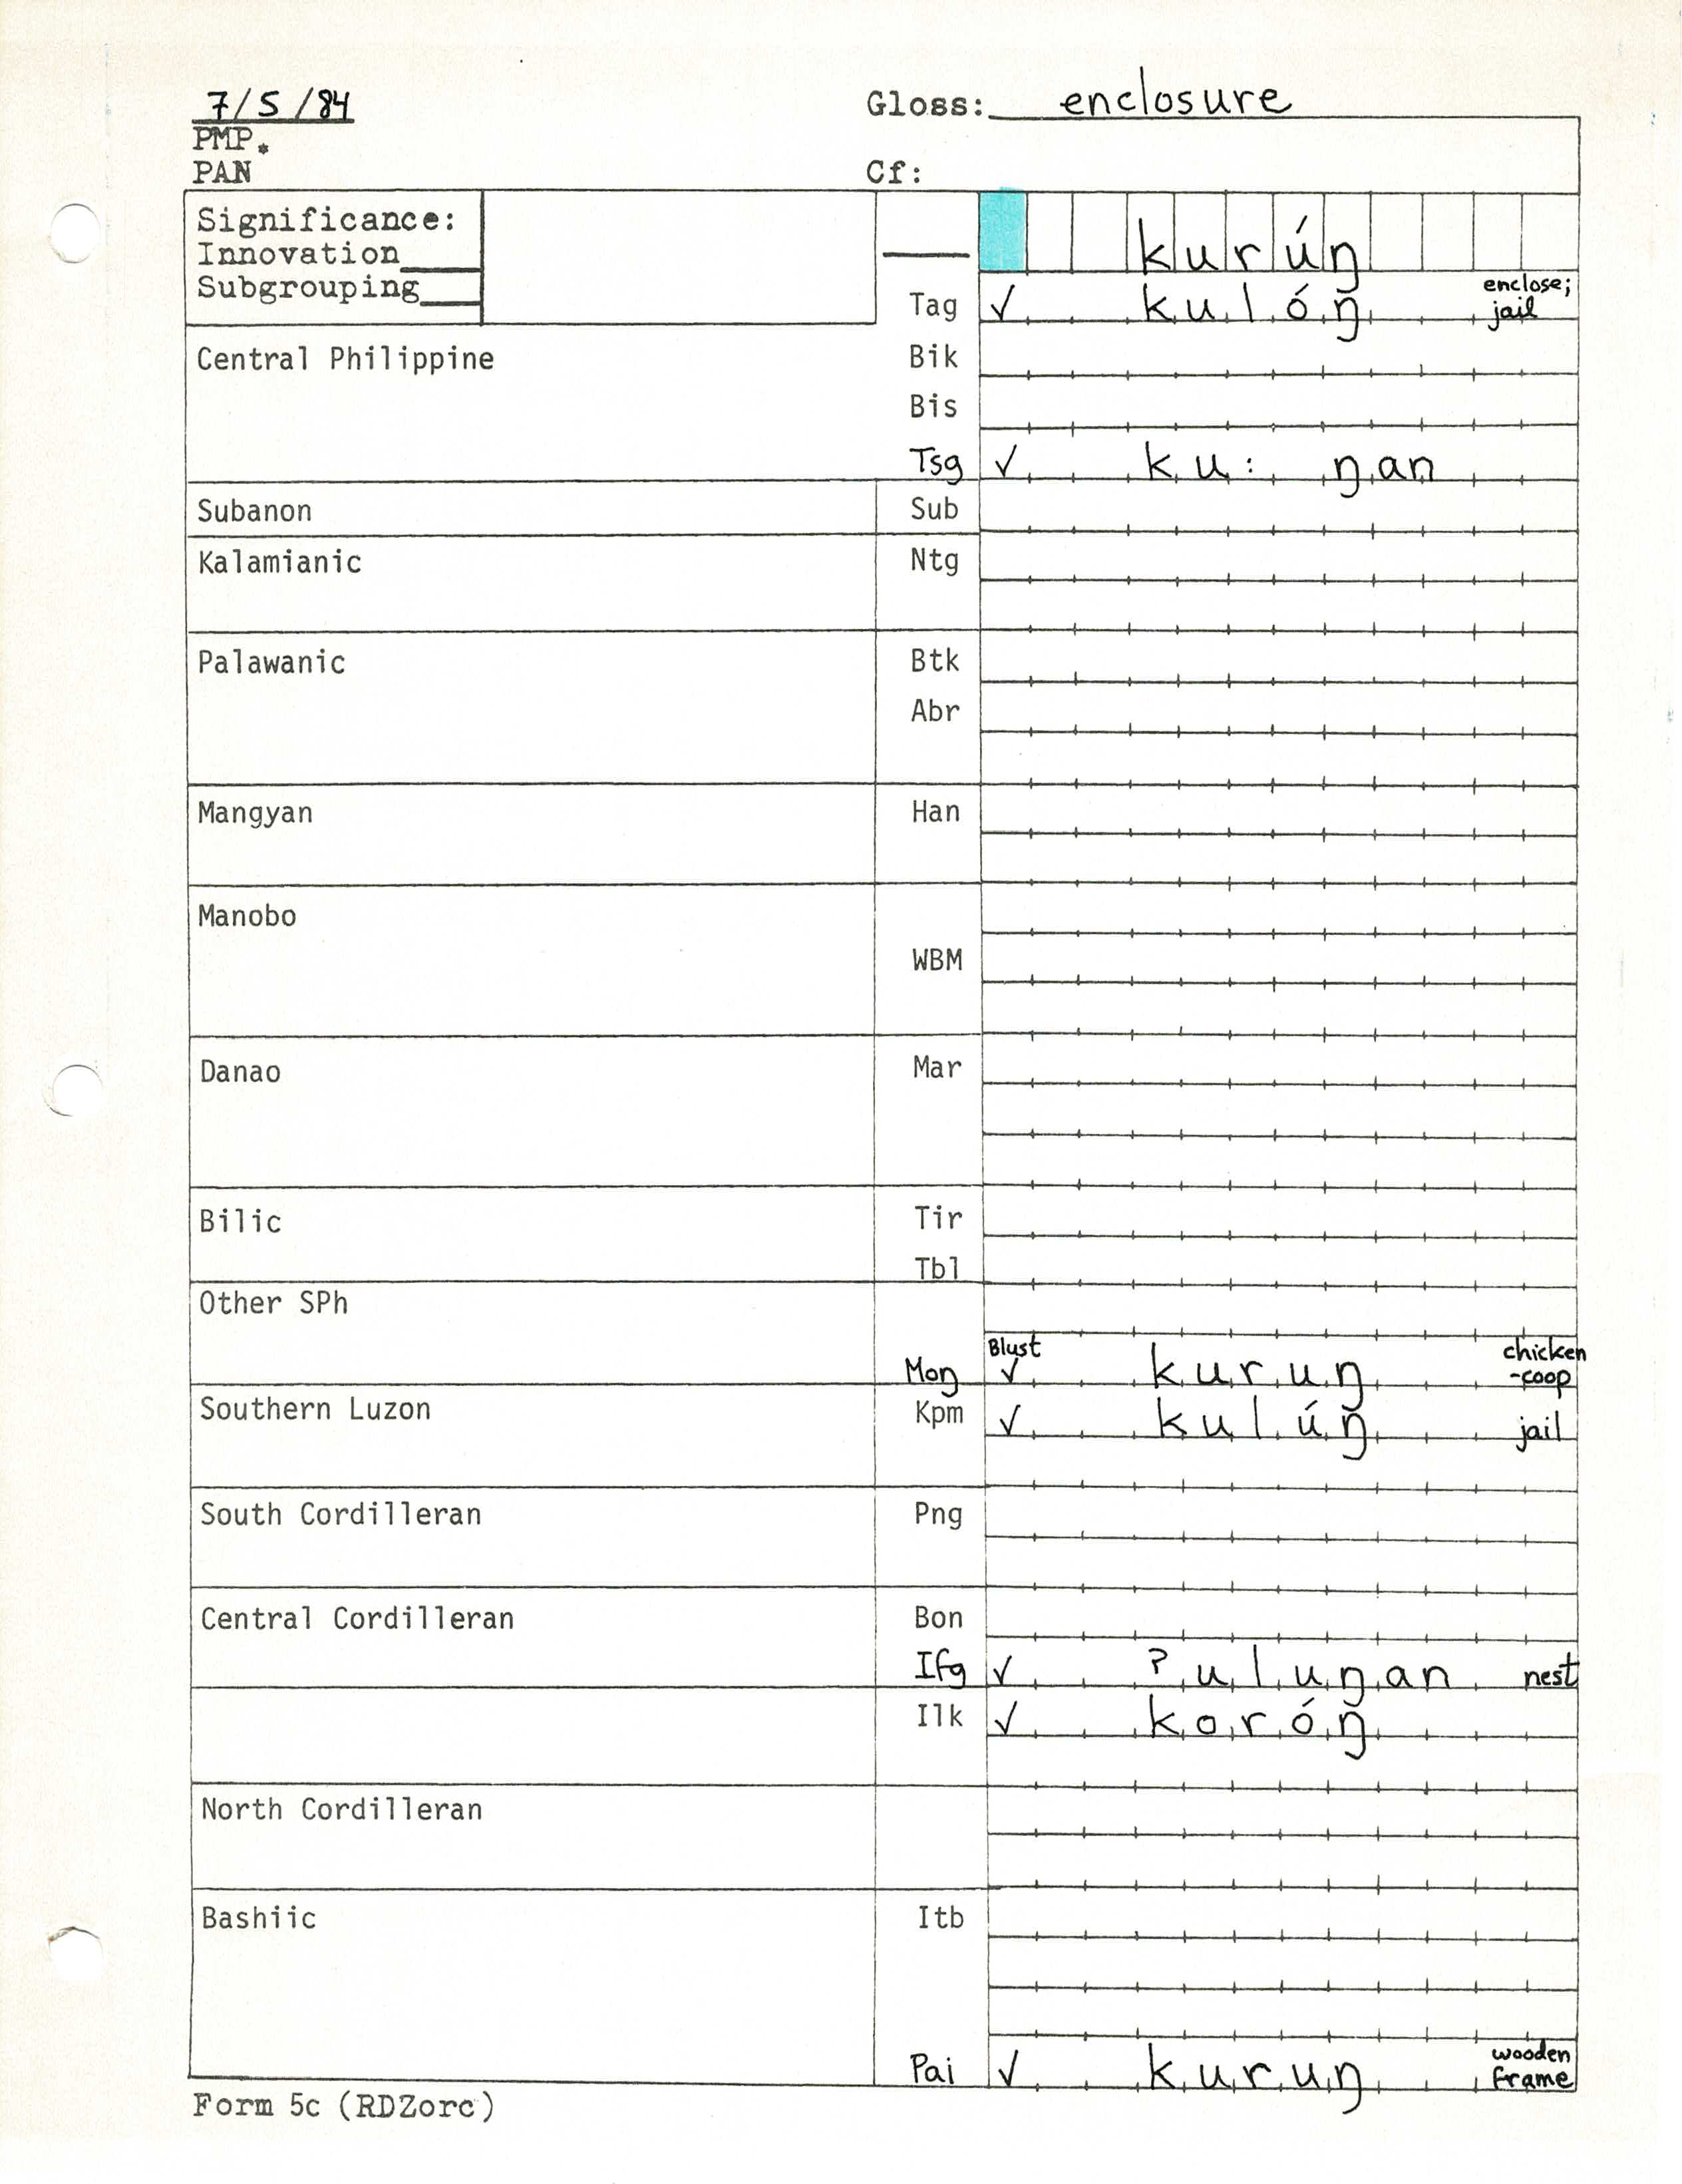 7/5/84 Gloss: enclosure
PMP.
PAN Cf:
Significance:
Innovation
Subgrouping
kurúŋ
Tag ✓ kulóŋ enclose; jail
Central Philippine Bik
Bis
Tsg ✓ ku: ŋan
Subanon Sub
Kalamianic Ntg
Palawanic Btk
Abr
Mangyan Han
Manobo
WBM
Danao Mar
Bilic Tir
Tbl
Other SPh
Mon Blust ✓ kuruŋ chicken-coop
Southern Luzon Kpm ✓ kulúŋ jail
South Cordilleran Png
Central Cordilleran Bon
Ifg ✓ ʔuluŋan nest
Ilk ✓ koróŋ
North Cordilleran
Bashiic Itb
Pai ✓ kuruŋ wooden frame
Form 5c (RDZorc)